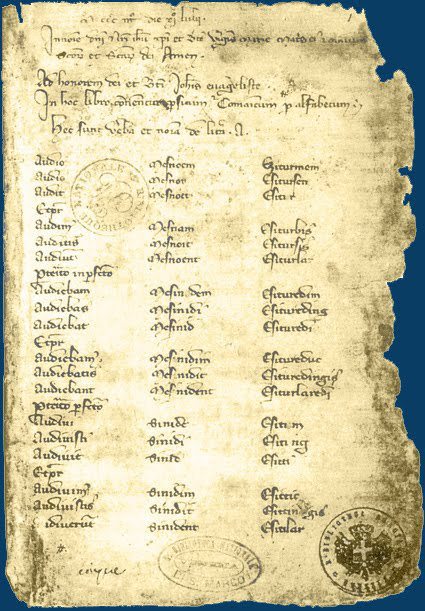 M ccc iij die xi Iulii
In noie dni nri ihu xpi et bte Virginis marie matris ei et omnium
Sctor et Sctar dei Amen.
Ad honorem dei et Bti Johis euageliste
In hoc libro continentur psicum Comanicum p alfabetum.
Hec sunt verba et noia de litra A.
Audio Mesnoem Eziturmem
Audis Mesnoy Esitursen
Audit Mesnoet Esitir
Et pr
Audim Mesnoam Esiturbis
Auditis Mesnoit Esitursis
Audiut Mesnoent Esiturlar
Ptito inpfcto
Audiebam Mesin dem Esituredim
Audiebas Mesinidi Esitureding
Audiebat Mesinid Esituredi
Et pr
Audiebam Mesinidim Esitureduc
Audiebatis Mesinidit Esituredingis
Audiebant Mesinident Esiturlaredi
Ptito pfcto
Audiui Sinide Esitim
Audiuisti Sinidi Esiting
Audiuit Sinid Esitti
Et pr
Audiuim Sinidim Esittic
Audiuistis Sinidit Esittingis
udiuerut Sinident Esitilar